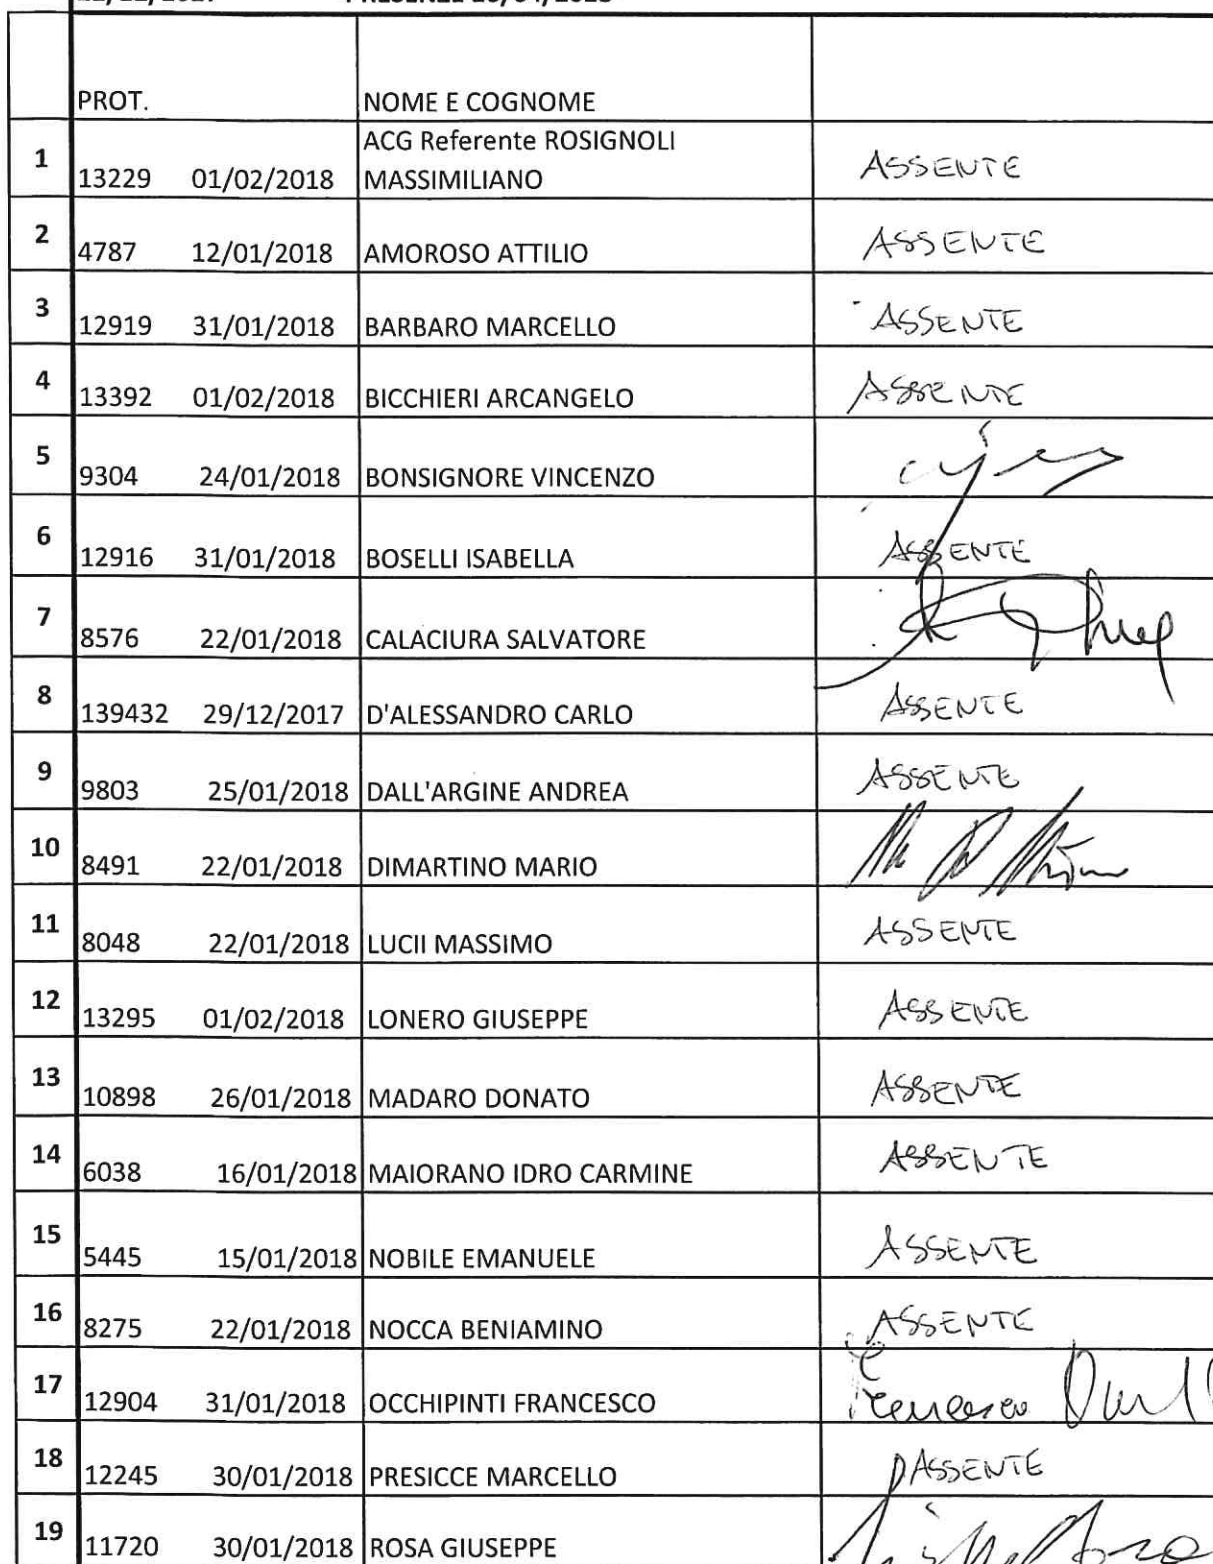 PROT. NOME E COGNOME
1 13229 01/02/2018 ACG Referente ROSIGNOLI MASSIMILIANO ASSENTE
2 4787 12/01/2018 AMOROSO ATTILIO ASSENTE
3 12919 31/01/2018 BARBARO MARCELLO ASSENTE
4 13392 01/02/2018 BICCHIERI ARCANGELO ASSENTE
5 9304 24/01/2018 BONSIGNORE VINCENZO
6 12916 31/01/2018 BOSELLI ISABELLA ASSENTE
7 8576 22/01/2018 CALACIURA SALVATORE
8 139432 29/12/2017 D'ALESSANDRO CARLO ASSENTE
9 9803 25/01/2018 DALL'ARGINE ANDREA ASSENTE
10 8491 22/01/2018 DIMARTINO MARIO
11 8048 22/01/2018 LUCII MASSIMO ASSENTE
12 13295 01/02/2018 LONERO GIUSEPPE ASSENTE
13 10898 26/01/2018 MADARO DONATO ASSENTE
14 6038 16/01/2018 MAIORANO IDRO CARMINE ASSENTE
15 5445 15/01/2018 NOBILE EMANUELE ASSENTE
16 8275 22/01/2018 NOCCA BENIAMINO ASSENTE
17 12904 31/01/2018 OCCHIPINTI FRANCESCO Francesco
18 12245 30/01/2018 PRESICCE MARCELLO ASSENTE
19 11720 30/01/2018 ROSA GIUSEPPE